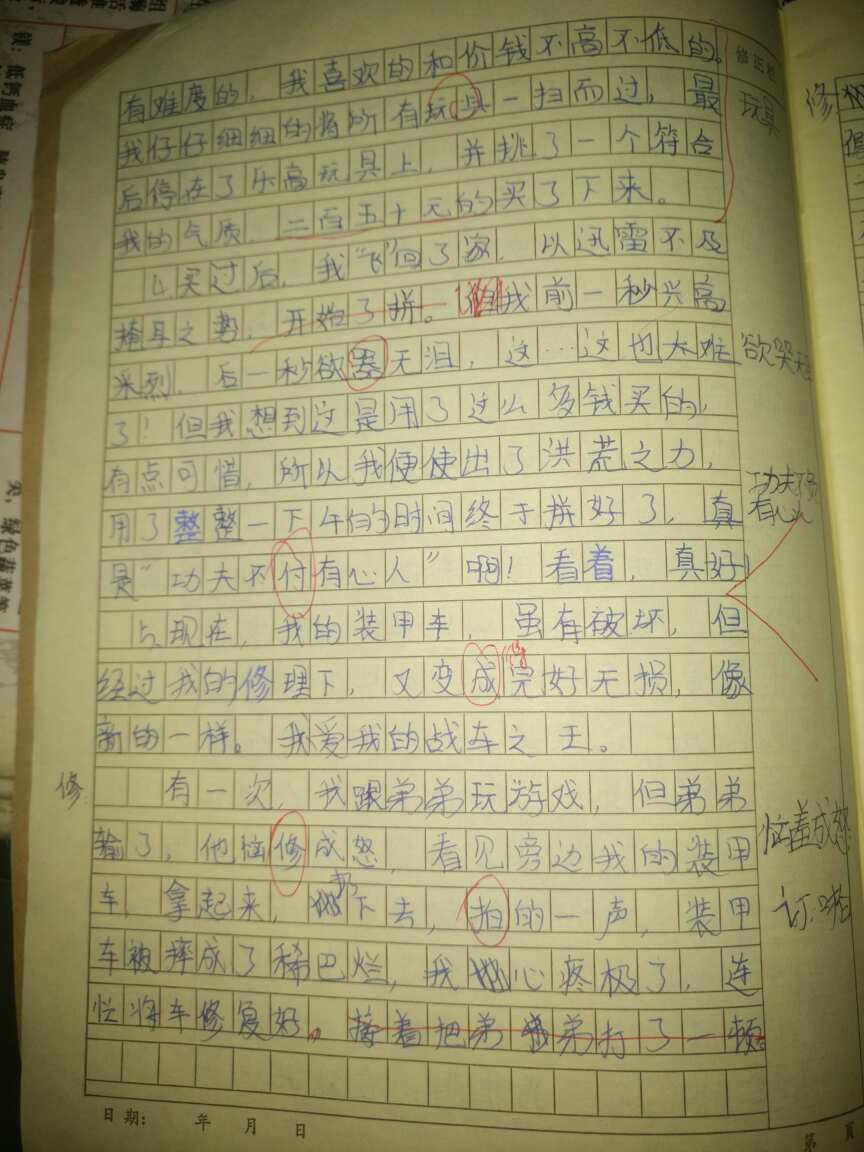 有难度的，我喜欢的和价钱不高不低的。
我仔仔细细的将所有玩具一扫而过，最
后停在了乐高玩具上，并挑了一个符合
我的气质，二百五十元的买了下来。
买过后，我“飞”回了家，以迅雷不及
掩耳之势，开始了拼。但我前一秒兴高
采烈，后一秒欲器无泪，这…这也太难
了！但我想到这是用了这么多钱买的，
有点可惜，所以我便使出了洪荒之力，
用了整整一下午的时间终于拼好了，真
是“功夫不付有心人”啊！看着，真好！
现在，我的装甲车，虽有破坏，但
经过我的修理下，又变成完好无损，像
新的一样。我爱我的战车之王。
有一次，我跟弟弟玩游戏，但弟弟
输了，他恼修成怒，看见旁边我的装甲
车，拿起来，扔下去，拍的一声，装甲
车被摔成了稀巴烂，我心疼极了，连
忙将车修复好。接着把弟弟打了一顿。
修正栏
玩具
欲哭无
功夫不负
有心人
得
修
恼羞成怒
订：啪
日期： 年 月 日
第 页
修
镁：低钙血症
绿色蔬菜等